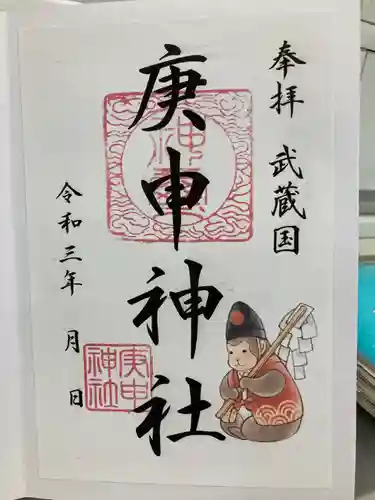 奉拝 武蔵国
庚申神社
令和三年 月 日
庚申
神社